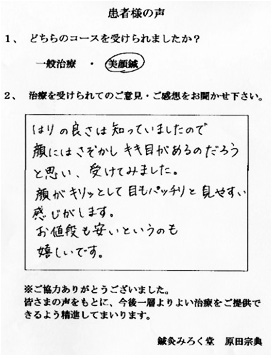 患者様の声
1、 どちらのコースを受けられましたか？
一般治療 ・ 美顔鍼
2、 治療を受けられてのご意見・ご感想をお聞かせ下さい。
はりの良さは知っていましたので
顔にはさぞかしキキ目があるのだろう
と思い、受けてみました。
顔がキリッとして目もパッチリと見やすい
感じがします。
お値段も安いというのも
嬉しいです。
※ご協力ありがとうございました。
皆さまの声をもとに、今後一層よりよい治療をご提供で
きるよう精進してまいります。
鍼灸みろく堂 原田宗典